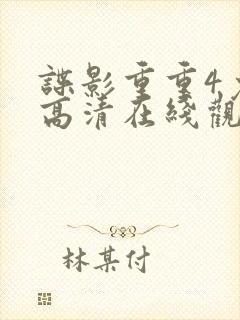 諜影重重4
高清在綫觀
林某付